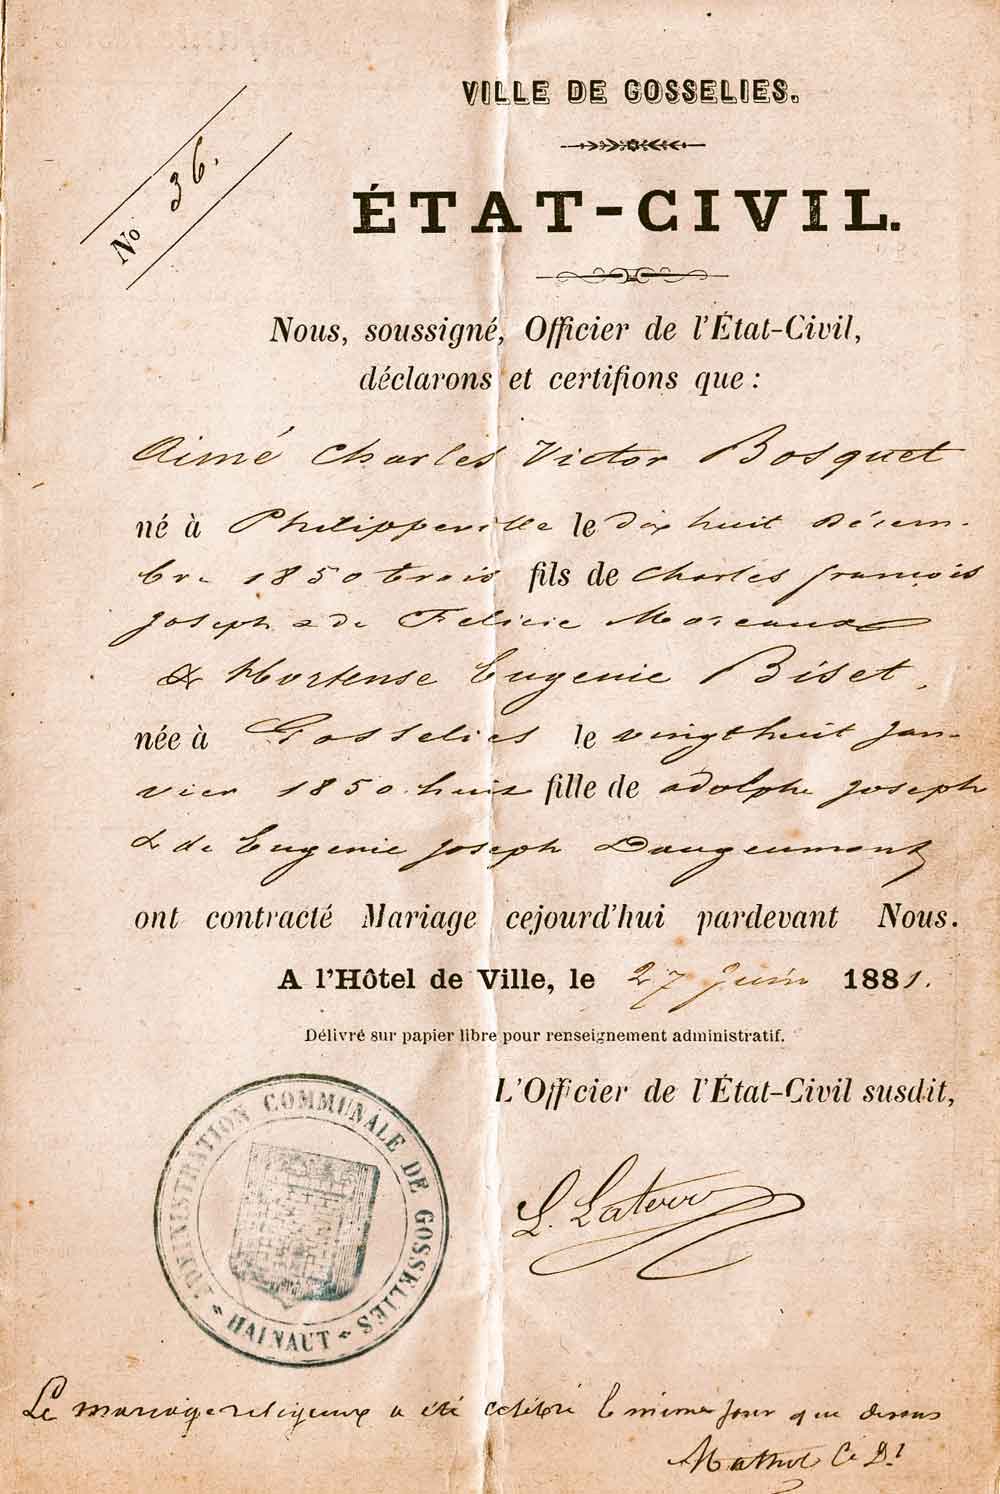 VILLE DE GOSSELIES.
No 36.
ÉTAT-CIVIL.
Nous, soussigné, Officier de l'État-Civil,
déclarons et certifions que :
Aimé Charles Victor Bosquet
né à Philippeville le dix huit Décem-
bre 1850 trois fils de Charles françois
Joseph & de Felicie Moreaux
& Hortense Eugenie Biset,
née à Gosselies le vingt huit Jan-
vier 1850 huit fille de adolphe Joseph
& de Eugenie Joseph Daugeumont
ont contracté Mariage cejourd'hui pardevant Nous.
A l'Hôtel de Ville, le 27 Juin 1881.
Délivré sur papier libre pour renseignement administratif.
L'Officier de l'État-Civil susdit,
ADMINISTRATION COMMUNALE DE GOSSELIES
HAINAUT
L. Laterre
Le mariage religieux a été célébré le même jour que dessus
Mathot